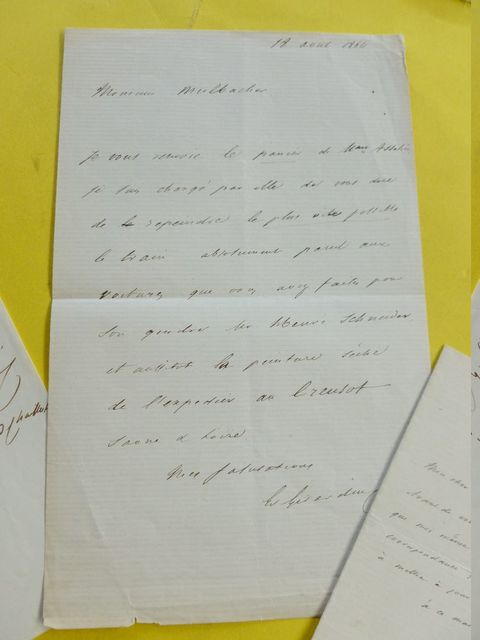 18 août 186
Monsieur Mulbacher
Je vous renvoie le panier de Mme Asselin
je suis chargé par elle de vous dire
de le repeindre le plus vite possible
le train absolument pareil aux
voitures que vous avez faites pour
son gendre Mr Henri Schneider
et aussitot la peinture séche
de l'expedier au Creusot
Saone & Loire
Mes salutations
Mon cher
que
correspondance
à mettre à
à ce